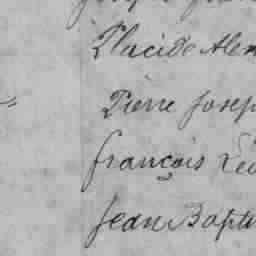 Placide Alex
Pierre Josep
françois Léo
Jean Bapti